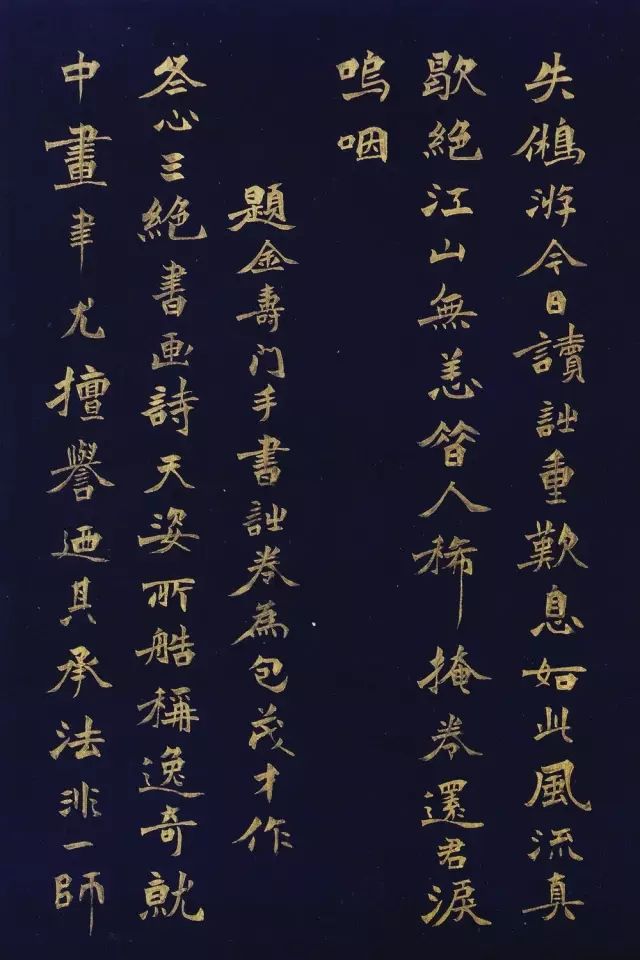 失游今日讀詩重歎息如此風流真
歇絕江山無恙昔人稀掩卷還君淚
嗚咽
題金壽门手書詩卷為包茂才作
冬心三絕書画詩天姿所艁稱逸奇就
中畫聿尤擅譽迺其承法非一師